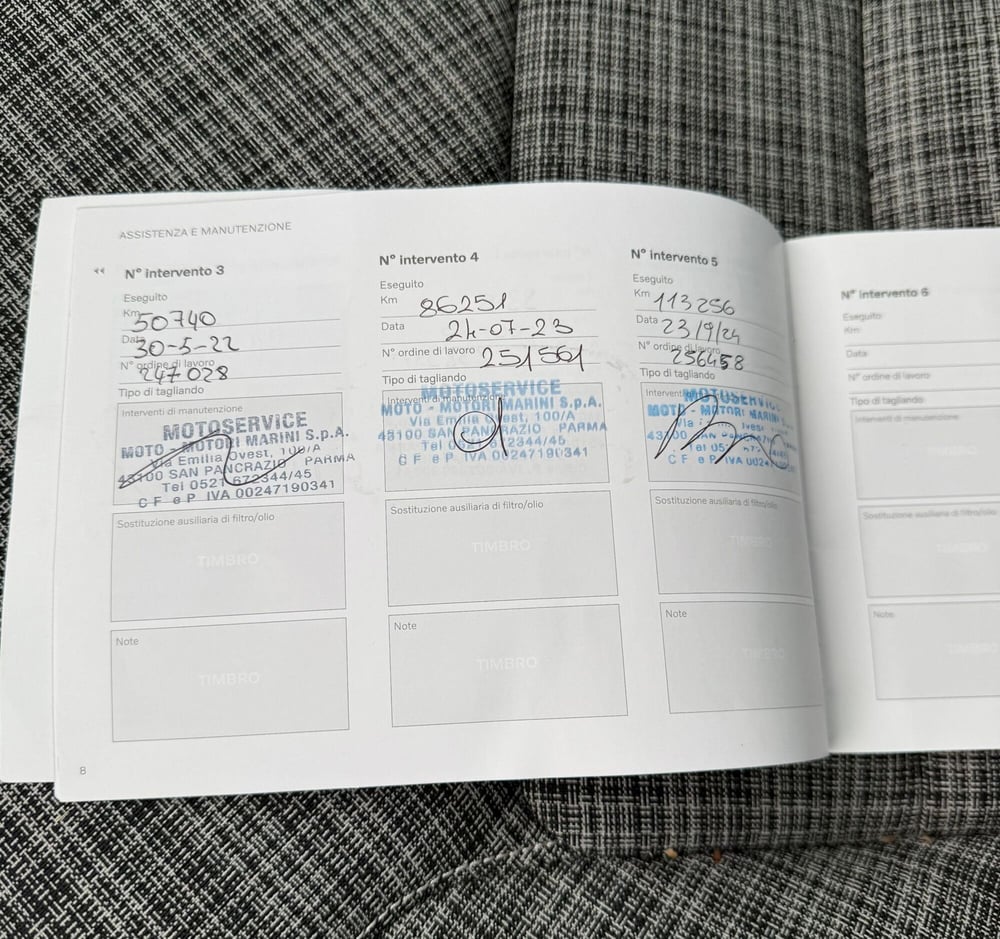 ASSISTENZA E MANUTENZIONE
N° intervento 3
Eseguito
Km 50740
Data 30-5-22
N° ordine di lavoro 247028
Tipo di tagliando
Interventi di manutenzione
MOTOSERVICE
MOTO - MOTORI MARINI S.p.A.
Via Emilia Ovest, 100/A
43100 SAN PANCRAZIO PARMA
Tel 0521 672344/45
C F e P. IVA 00247190341
Sostituzione ausiliaria di filtro/olio
TIMBRO
Note
TIMBRO
8
N° intervento 4
Eseguito
Km 86251
Data 24-07-23
N° ordine di lavoro 251561
Tipo di tagliando
Interventi di manutenzione
MOTOSERVICE
MOTO - MOTORI MARINI S.p.A.
Via Emilia Ovest, 100/A
43100 SAN PANCRAZIO PARMA
Tel 0521 672344/45
C F e P. IVA 00247190341
Sostituzione ausiliaria di filtro/olio
TIMBRO
Note
TIMBRO
N° intervento 5
Eseguito
Km 113256
Data 23/9/24
N° ordine di lavoro 256458
Tipo di tagliando
Interventi
MOTOSERVI
MOTO - MOTORI MARINI
Via
43100 SAN
Tel 052
C F e P. IVA 0024
Sostituzione ausiliaria di filtro/olio
TIMBRO
Note
TIMBRO
N° intervento 6
Eseguito
Km
Data
N° ordine di lavoro
Tipo di tagliando
Interventi di manutenzione
TIMBRO
Sostituzione ausiliaria di filtro/olio
TIMBRO
Note
TIMBRO